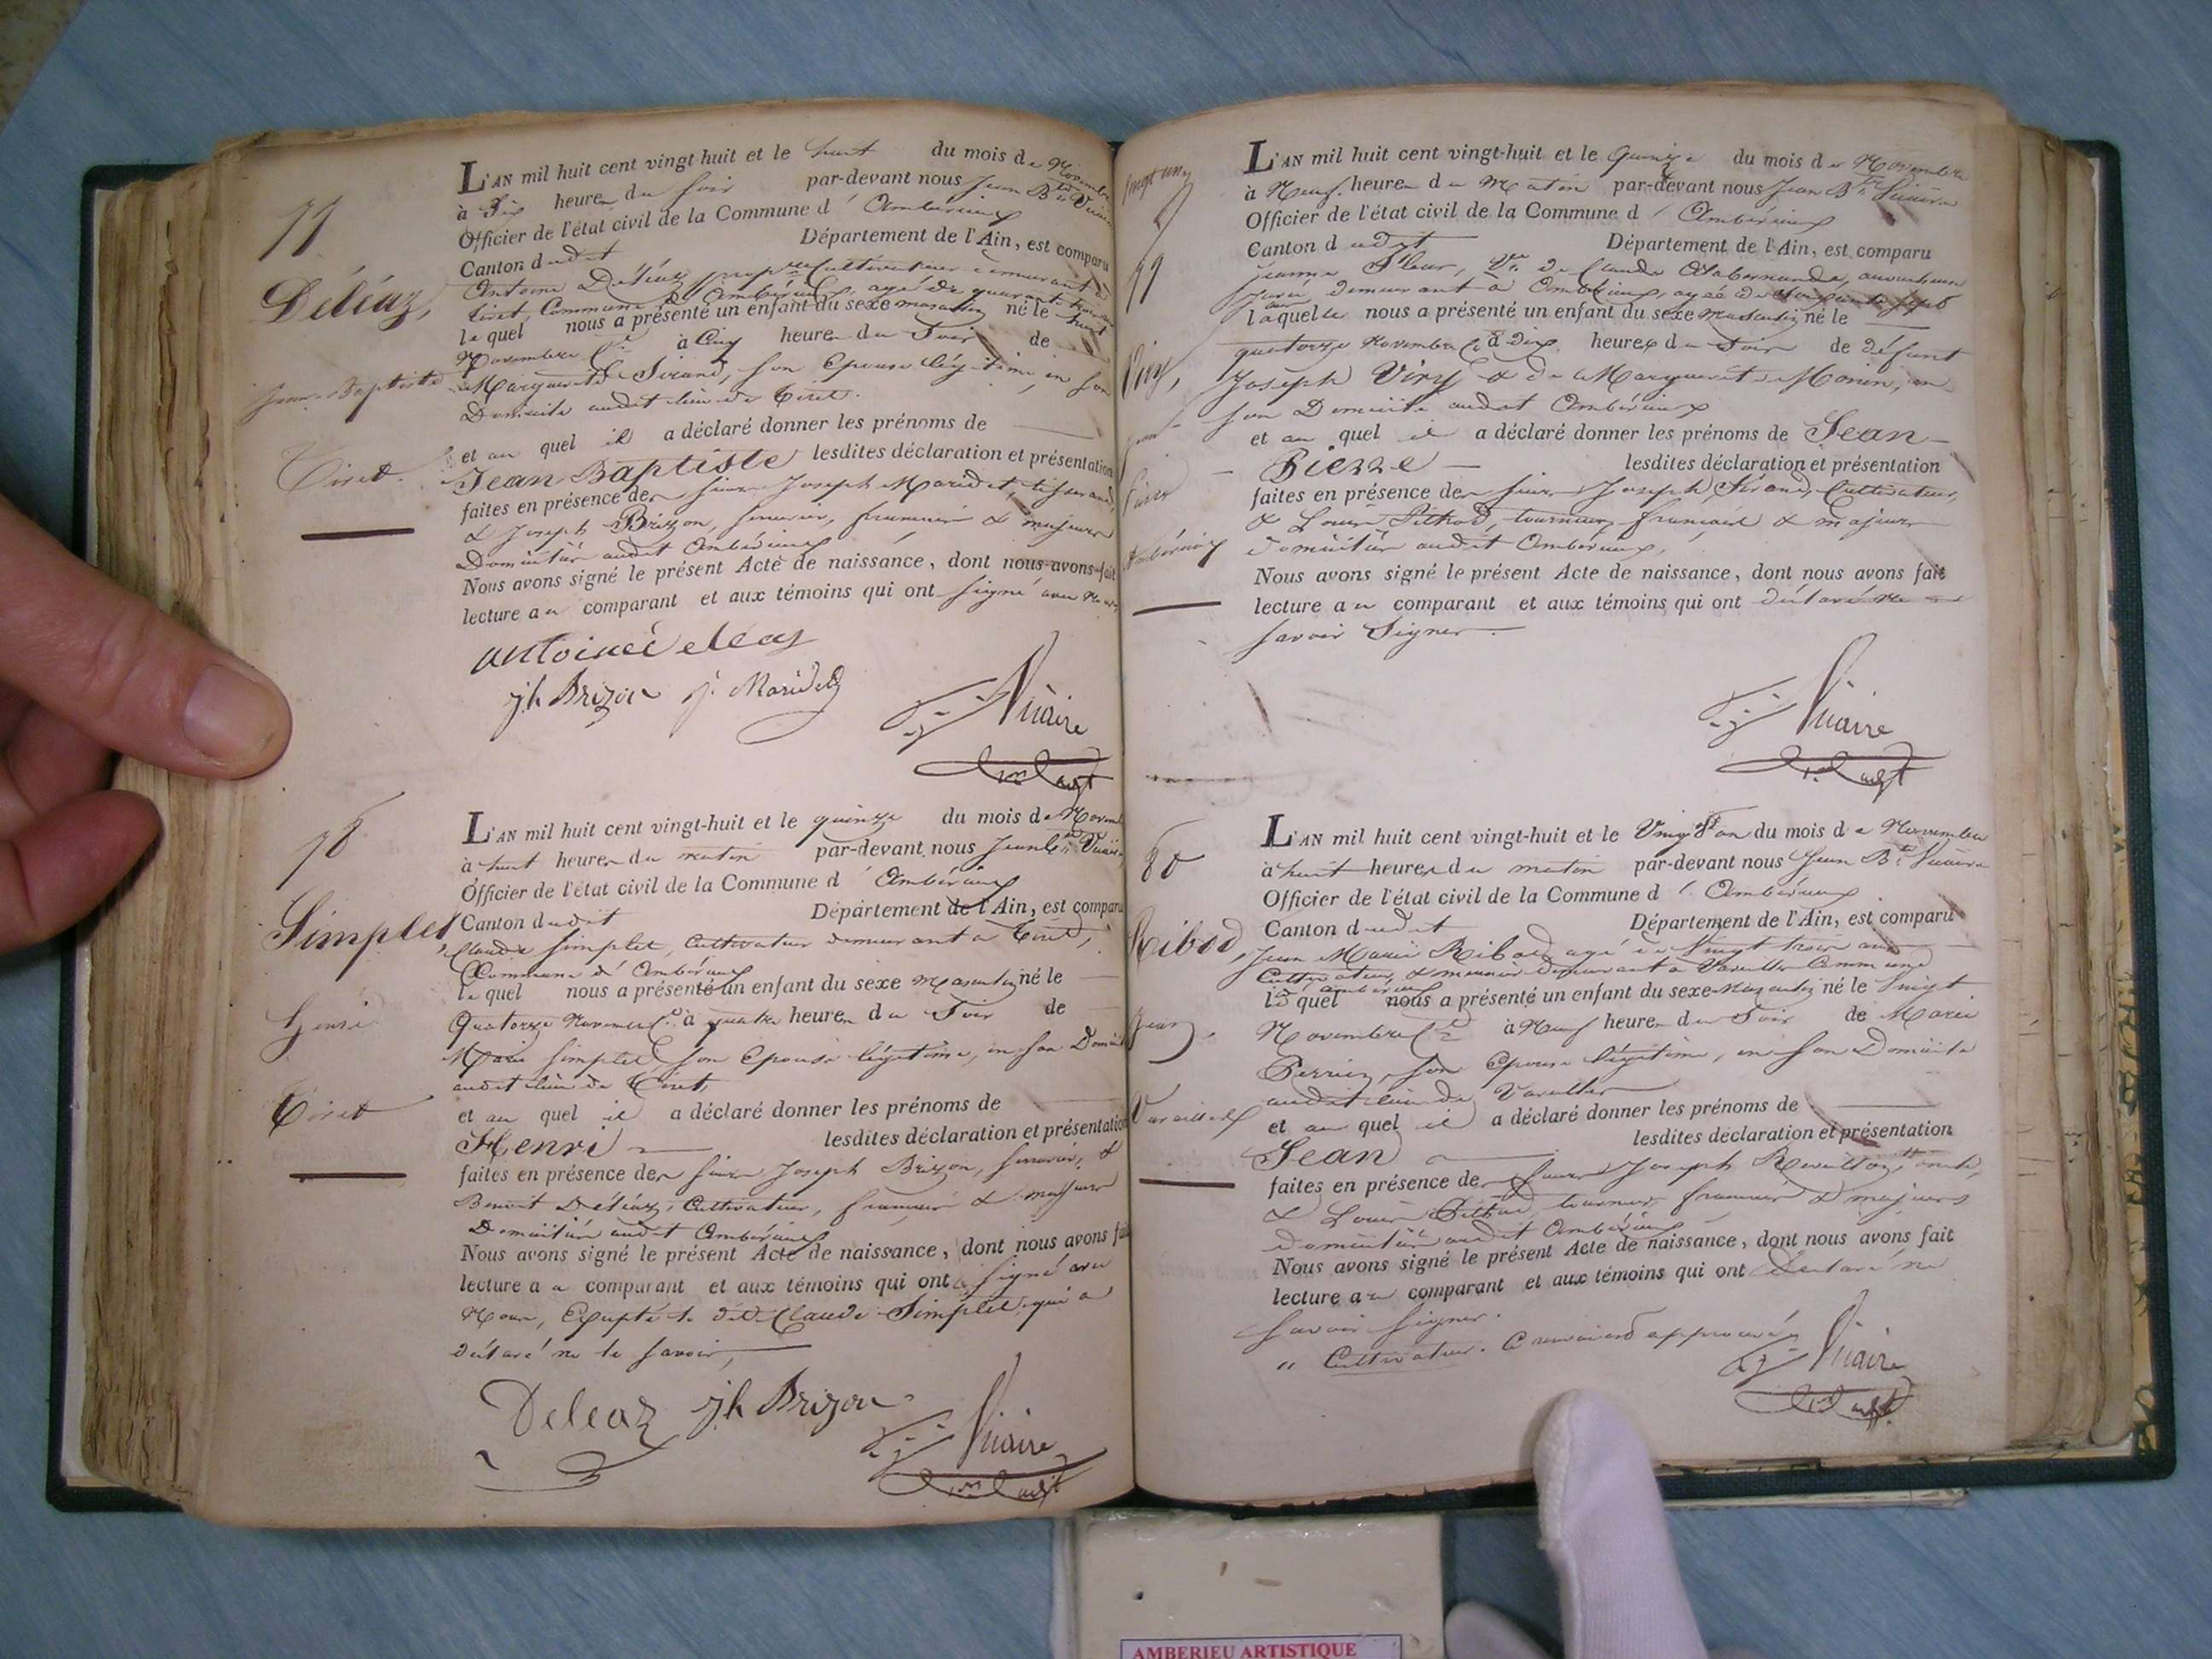 77
Déléaz,
Jean-Baptiste
Tiret.
L'AN mil huit cent vingt-huit et le huit du mois de Novembre
à Six heures du soir par-devant nous Jean Bte Vicaire
Officier de l'état civil de la Commune d' Ambérieux
Canton dudit Département de l'Ain, est comparu
Antoine Déléaz, propre Cultivateur demeurant à
Tiret, Commune d'Ambérieux, agé de quarante
lequel nous a présenté un enfant du sexe masculin né le huit
Novembre Ct à Cinq heures du Soir de
Marguerite Sirand, son Epouse légitime, en son
Domicile audit lieu de Tiret.
et au quel il a déclaré donner les prénoms de
Jean Baptiste lesdites déclaration et présentation
faites en présence des sieurs Joseph Maridet, tisserand,
& Joseph Brizon, serrurier, français & majeurs
Domiciliés audit Ambérieux
Nous avons signé le présent Acte de naissance, dont nous avons fait
lecture au comparant et aux témoins qui ont signé avec nous,
antoine deleas
jh Brizon j. Maridet
Vicaire
78
Simplet,
Henri
Tiret
L'AN mil huit cent vingt-huit et le quinze du mois de Novembre
à huit heures du matin par-devant nous Jean Bte Vicaire
Officier de l'état civil de la Commune d' Ambérieux
Canton dudit Département de l'Ain, est comparu
Claude Simplet, Cultivateur demeurant à Tiret,
Commune d'Ambérieux
lequel nous a présenté un enfant du sexe masculin né le
Quatorze Novembre Ct à quatre heures du Soir de
Marie Simplet, son Epouse légitime, en son Domicile
audit lieu de Tiret,
et au quel il a déclaré donner les prénoms de
Henri lesdites déclaration et présentation
faites en présence des sieurs Joseph Brizon, serrurier, &
Benoit Déléaz, Cultivateur, français & majeurs
Domiciliés audit Ambérieux
Nous avons signé le présent Acte de naissance, dont nous avons fait
lecture au comparant et aux témoins qui ont signé avec
Nous, Excepté le dit Claude Simplet, qui a
déclaré ne le savoir,
Deleaz jh Brizon
Vicaire
79
Viry,
Jean-
Pierre
Ambérieux
L'AN mil huit cent vingt-huit et le Quinze du mois de Novembre
à Neuf heures du Matin par-devant nous Jean Bte Vicaire
Officier de l'état civil de la Commune d' Ambérieux
Canton dudit Département de l'Ain, est comparu
Jeanne Fleur, Ve de Claude
Jurée demeurant à Ambérieux, agée de
laquelle nous a présenté un enfant du sexe masculin né le
quatorze Novembre Ct à dix heures du Soir de défunt
Joseph Viry & de Marguerite Monin, en
son Domicile audit Ambérieux
et au quel il a déclaré donner les prénoms de Jean-
Pierre lesdites déclaration et présentation
faites en présence des sieurs Joseph Sirand, Cultivateur,
& Louis Pithod, tourneur, français & majeurs
domiciliés audit Ambérieux,
Nous avons signé le présent Acte de naissance, dont nous avons fait
lecture au comparant et aux témoins qui ont déclaré ne
savoir Signer.
Vicaire
80
Ribod,
Jean,
Vareilles
L'AN mil huit cent vingt-huit et le Vingt un du mois de Novembre
à huit heures du matin par-devant nous Jean Bte Vicaire
Officier de l'état civil de la Commune d' Ambérieux
Canton dudit Département de l'Ain, est comparu
Jean Marie Ribod, agé de Vingt trois ans
Cultivateur, demeurant à Vareilles Commune
d'Ambérieux
lequel nous a présenté un enfant du sexe Masculin né le Vingt
Novembre Ct à Neuf heures du Soir de Marie
Perrin, son Epouse légitime, en son Domicile
audit lieu de Vareilles
et au quel il a déclaré donner les prénoms de
Jean lesdites déclaration et présentation
faites en présence des sieurs Joseph
& Louis Pithod, tourneur, français & majeurs
domiciliés audit Ambérieux
Nous avons signé le présent Acte de naissance, dont nous avons fait
lecture au comparant et aux témoins qui ont Déclaré ne
Savoir signer.
" Cultivateur. approuvé
Vicaire
AMBERIEU ARTISTIQUE